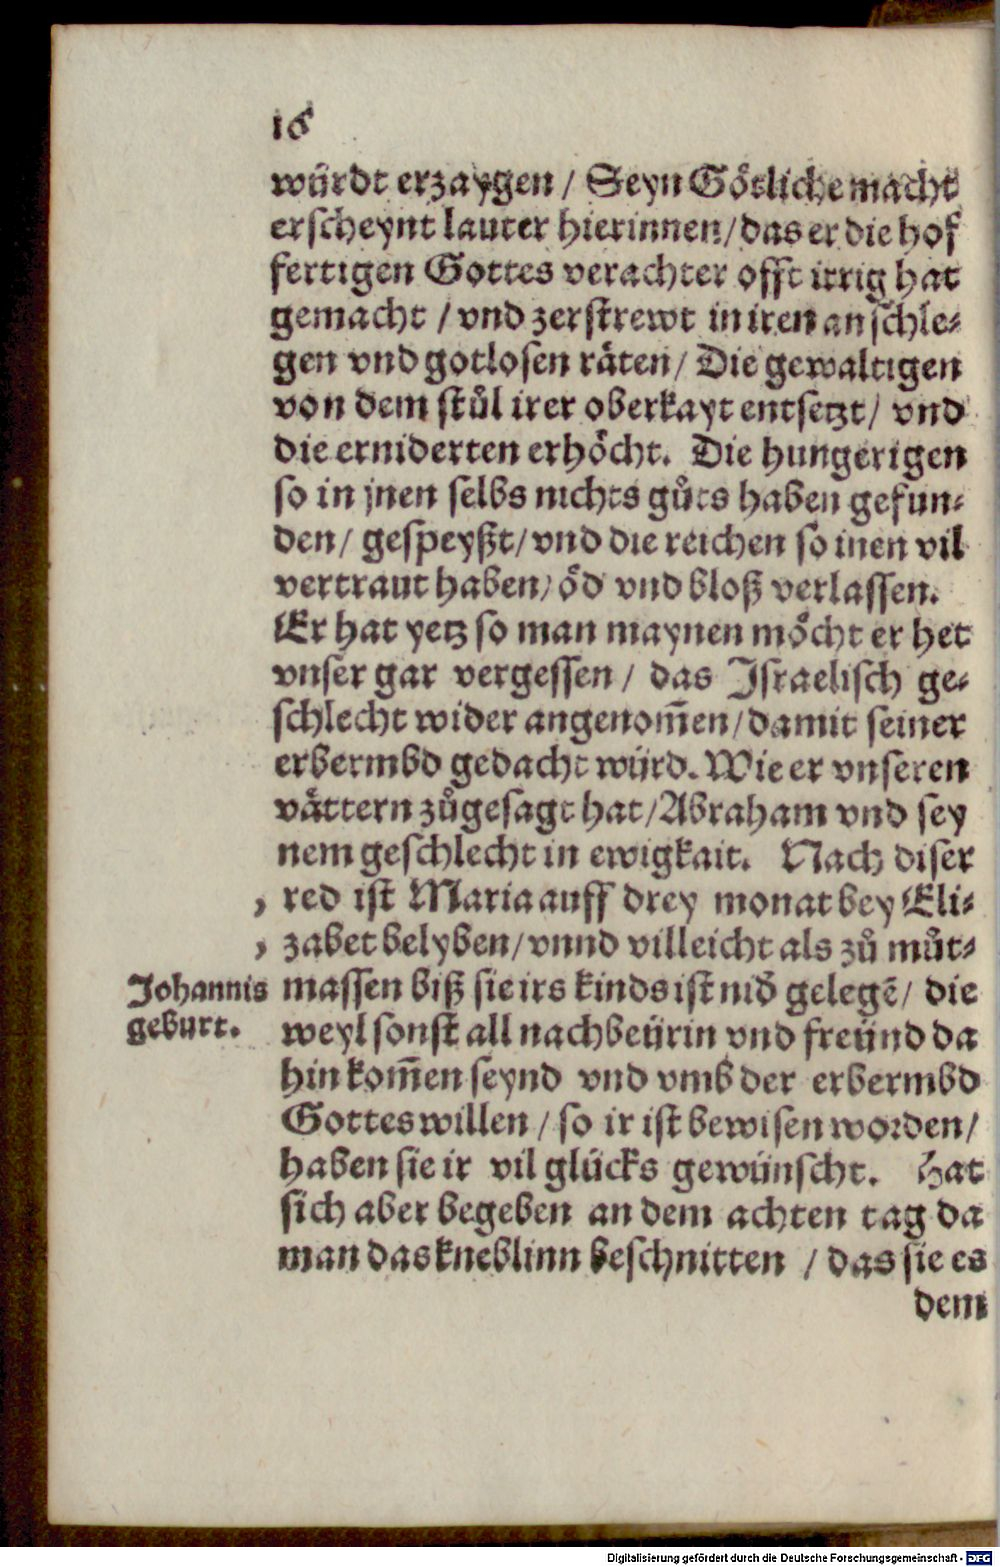 16
würdt erzaygen / Seyn Götliche macht
erscheynt lauter hierinnen/ das er die hof
fertigen Gottes verachter offt irrig hat
gemacht / vnd zerstrewt in iren anschle-
gen vnd gotlosen räten/ Die gewaltigen
von dem stůl irer oberkayt entsetzt/ vnd
die erniderten erhöcht. Die hungerigen
so in jnen selbs nichts gůts haben gefun-
den/ gespeyßt/ vnd die reichen so inen vil
vertraut haben/ öd vnd bloß verlassen.
Er hat yetz so man maynen möcht er het
vnser gar vergessen / das Israelisch ge-
schlecht wider angenom̃en/ damit seiner
erbermbd gedacht würd. Wie er vnseren
vättern zůgesagt hat/ Abraham vnd sey
nem geschlecht in ewigkait. Nach diser
, red ist Maria auff drey monat bey Eli-
, zabet belyben/ vnnd villeicht als zů můt-
Johannis
geburt.
massen biß sie irs kinds ist nid̕ gelegẽ/ die
weyl sonst all nachbeürin vnd freünd da
hin kom̃en seynd vnd vmb der erbermbd
Gottes willen / so ir ist bewisen worden/
haben sie ir vil glücks gewünscht. Hat
sich aber begeben an dem achten tag da
man das kneblinn beschnitten / das sie es
dem
Digitalisierung gefördert durch die Deutsche Forschungsgemeinschaft - DFG